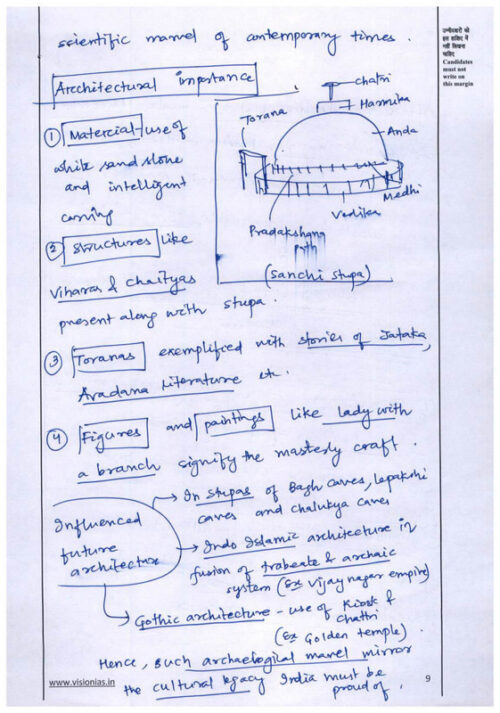 scientific marvel of contemporary times.
उम्मीदवारों को
इस हाशिए में
नहीं लिखना
चाहिए
Candidates
must not
write on
this margin
Architectural importance
① Material - use of
white sand stone
and intelligent
carving
Chatri
Harmika
Torana
Anda
Medhi
Vedika
Pradakshana
path
(Sanchi stupa)
② Structures like
Viharas & chaityas
present along with stupa.
③ Toranas exemplified with stories of Jataka,
Avadana literature etc.
④ Figures and paintings like lady with
a branch signify the masterly craft.
Influenced
future
architecture
→ In stupas of Bagh caves, lepakshi
caves and chalukya caves
→ Indo Islamic architecture in
fusion of trabeate & archaic
system (Ex Vijaynagar empire)
→ Gothic architecture - use of Kiosk &
Chattri
(Ex Golden temple).
Hence, such archaelogical marvel mirror
the cultural legacy India must be
proud of.
www.visionias.in
9